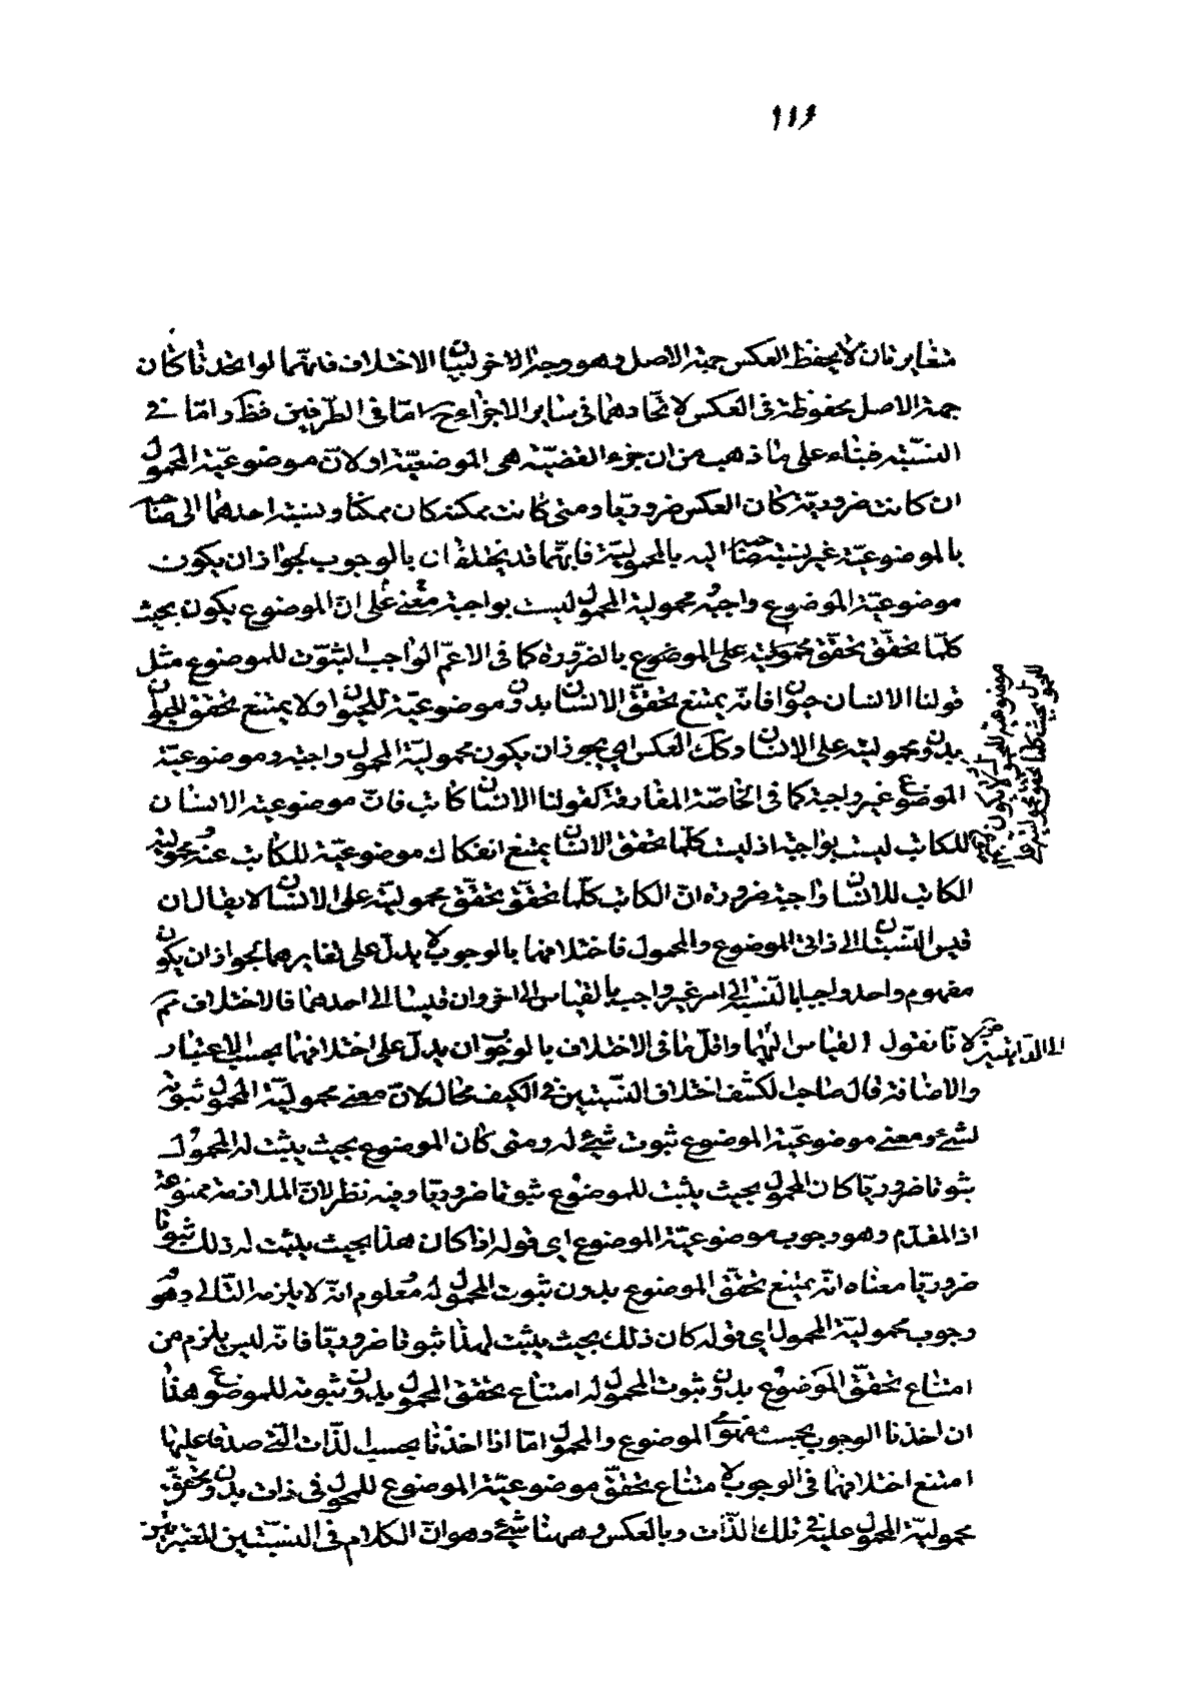 ١١٦
متغايرتان لا يحفظ العكس جهة الاصل وهو وجه الاخر لبيان الاختلاف فانهما لو اتحدتا كان
جهة الاصل محفوظة فى العكس لاتحادهما فى ساير الاجزاء ح اما فى الطرفين فظ واما فى
النسبة فبناء على ما ذهب من ان جزء القضية هى الموضعية او لان موضوعية المحمول
ان كانت ضرورية كان العكس ضروريا ومتى كانت ممكنة كان ممكنا ونسبة احدهما الى صاحبه
بالموضوعية غير نسبة صاحبه اليه بالمحمولية فانهما قد يختلفان بالوجوب لجواز ان يكون
موضوعية الموضوع واجبة ومحمولية المحمول ليست بواجبة معنى على ان الموضوع يكون بحيث
كلما تحقق تحقق محموليته على الموضوع بالضرورة كما فى الاعم الواجب الثبوت للموضوع مثل
قولنا الانسان حيوان فانه يمتنع تحقق الانسان بدون موضوعيته للحيوان ولا يمتنع تحقق الحيوان
بدون محموليته على الانسان وكك العكس اى يجوز ان يكون محمولية المحمول واجبة وموضوعية
الموضوع غير واجبة كما فى الخاصة المفارقة كقولنا الانسان كاتب فان موضوعية الانسان
للكاتب ليست بواجبة اذ ليست كلما تحقق الانسان يمتنع انفكاك موضوعية للكاتب عنه ومحمولية
الكاتب للانسان واجبة ضرورة ان الكاتب كلما تحقق تحقق محموليته على الانسان لا يقال ان
قيس النسبتان الى ذاتى الموضوع والمحمول فاختلافهما بالوجوب لا يدل على تغايرهما لجواز ان يكون
مفهوم واحد واجبا بالنسبة الى امر غير واجب بالقياس الى اخر وان قيسا الى احدهما فالاختلاف ثم
لانا نقول القياس اليهما واقل ما فى الاختلاف بالوجوب ان يدل على اختلافهما بحسب الاعتبار
والاضافة قال صاحب الكشف اختلاف النسبتين فى الكيف محال لان معنى محمولية المحمول ثبوته
لشئ ومعنى موضوعية الموضوع ثبوت شئ له ومتى كان الموضوع بحيث يثبت له المحمول
ثبوتا ضروريا كان المحمول بحيث يثبت للموضوع ثبوتا ضروريا وفيه نظر لان الملازمة ممنوعة
اذ المقدم وهو وجوب موضوعية الموضوع اى قوله اذا كان هذا بحيث يثبت له ذلك ثبوتا
ضروريا معناه انه يمتنع تحقق الموضوع بدون ثبوت المحمول له ومعلوم انه لا يلزمه التالى وهو
وجوب محمولية المحمول اى قوله كان ذلك بحيث يثبت لهذا ثبوتا ضروريا فانه ليس يلزم من
امتناع تحقق الموضوع بدون ثبوت المحمول له امتناع تحقق المحمول بدون ثبوته للموضوع وهذا
ان اخذنا الوجوب بحسب مفهومى الموضوع والمحمول اما اذا اخذنا بحسب الذات التى صدقا عليها
امتنع اختلافهما فى الوجوب لامتناع تحقق موضوعية الموضوع للمحمول فى ذات بدون تحقق
محمولية المحمول عليه فى تلك الذات وبالعكس وههنا شئ وهو ان الكلام فى النسبتين المعتبرتين
موضوعيته للمحمول لا يكون
للمحمول بحيث كلما تحقق
الى الذات